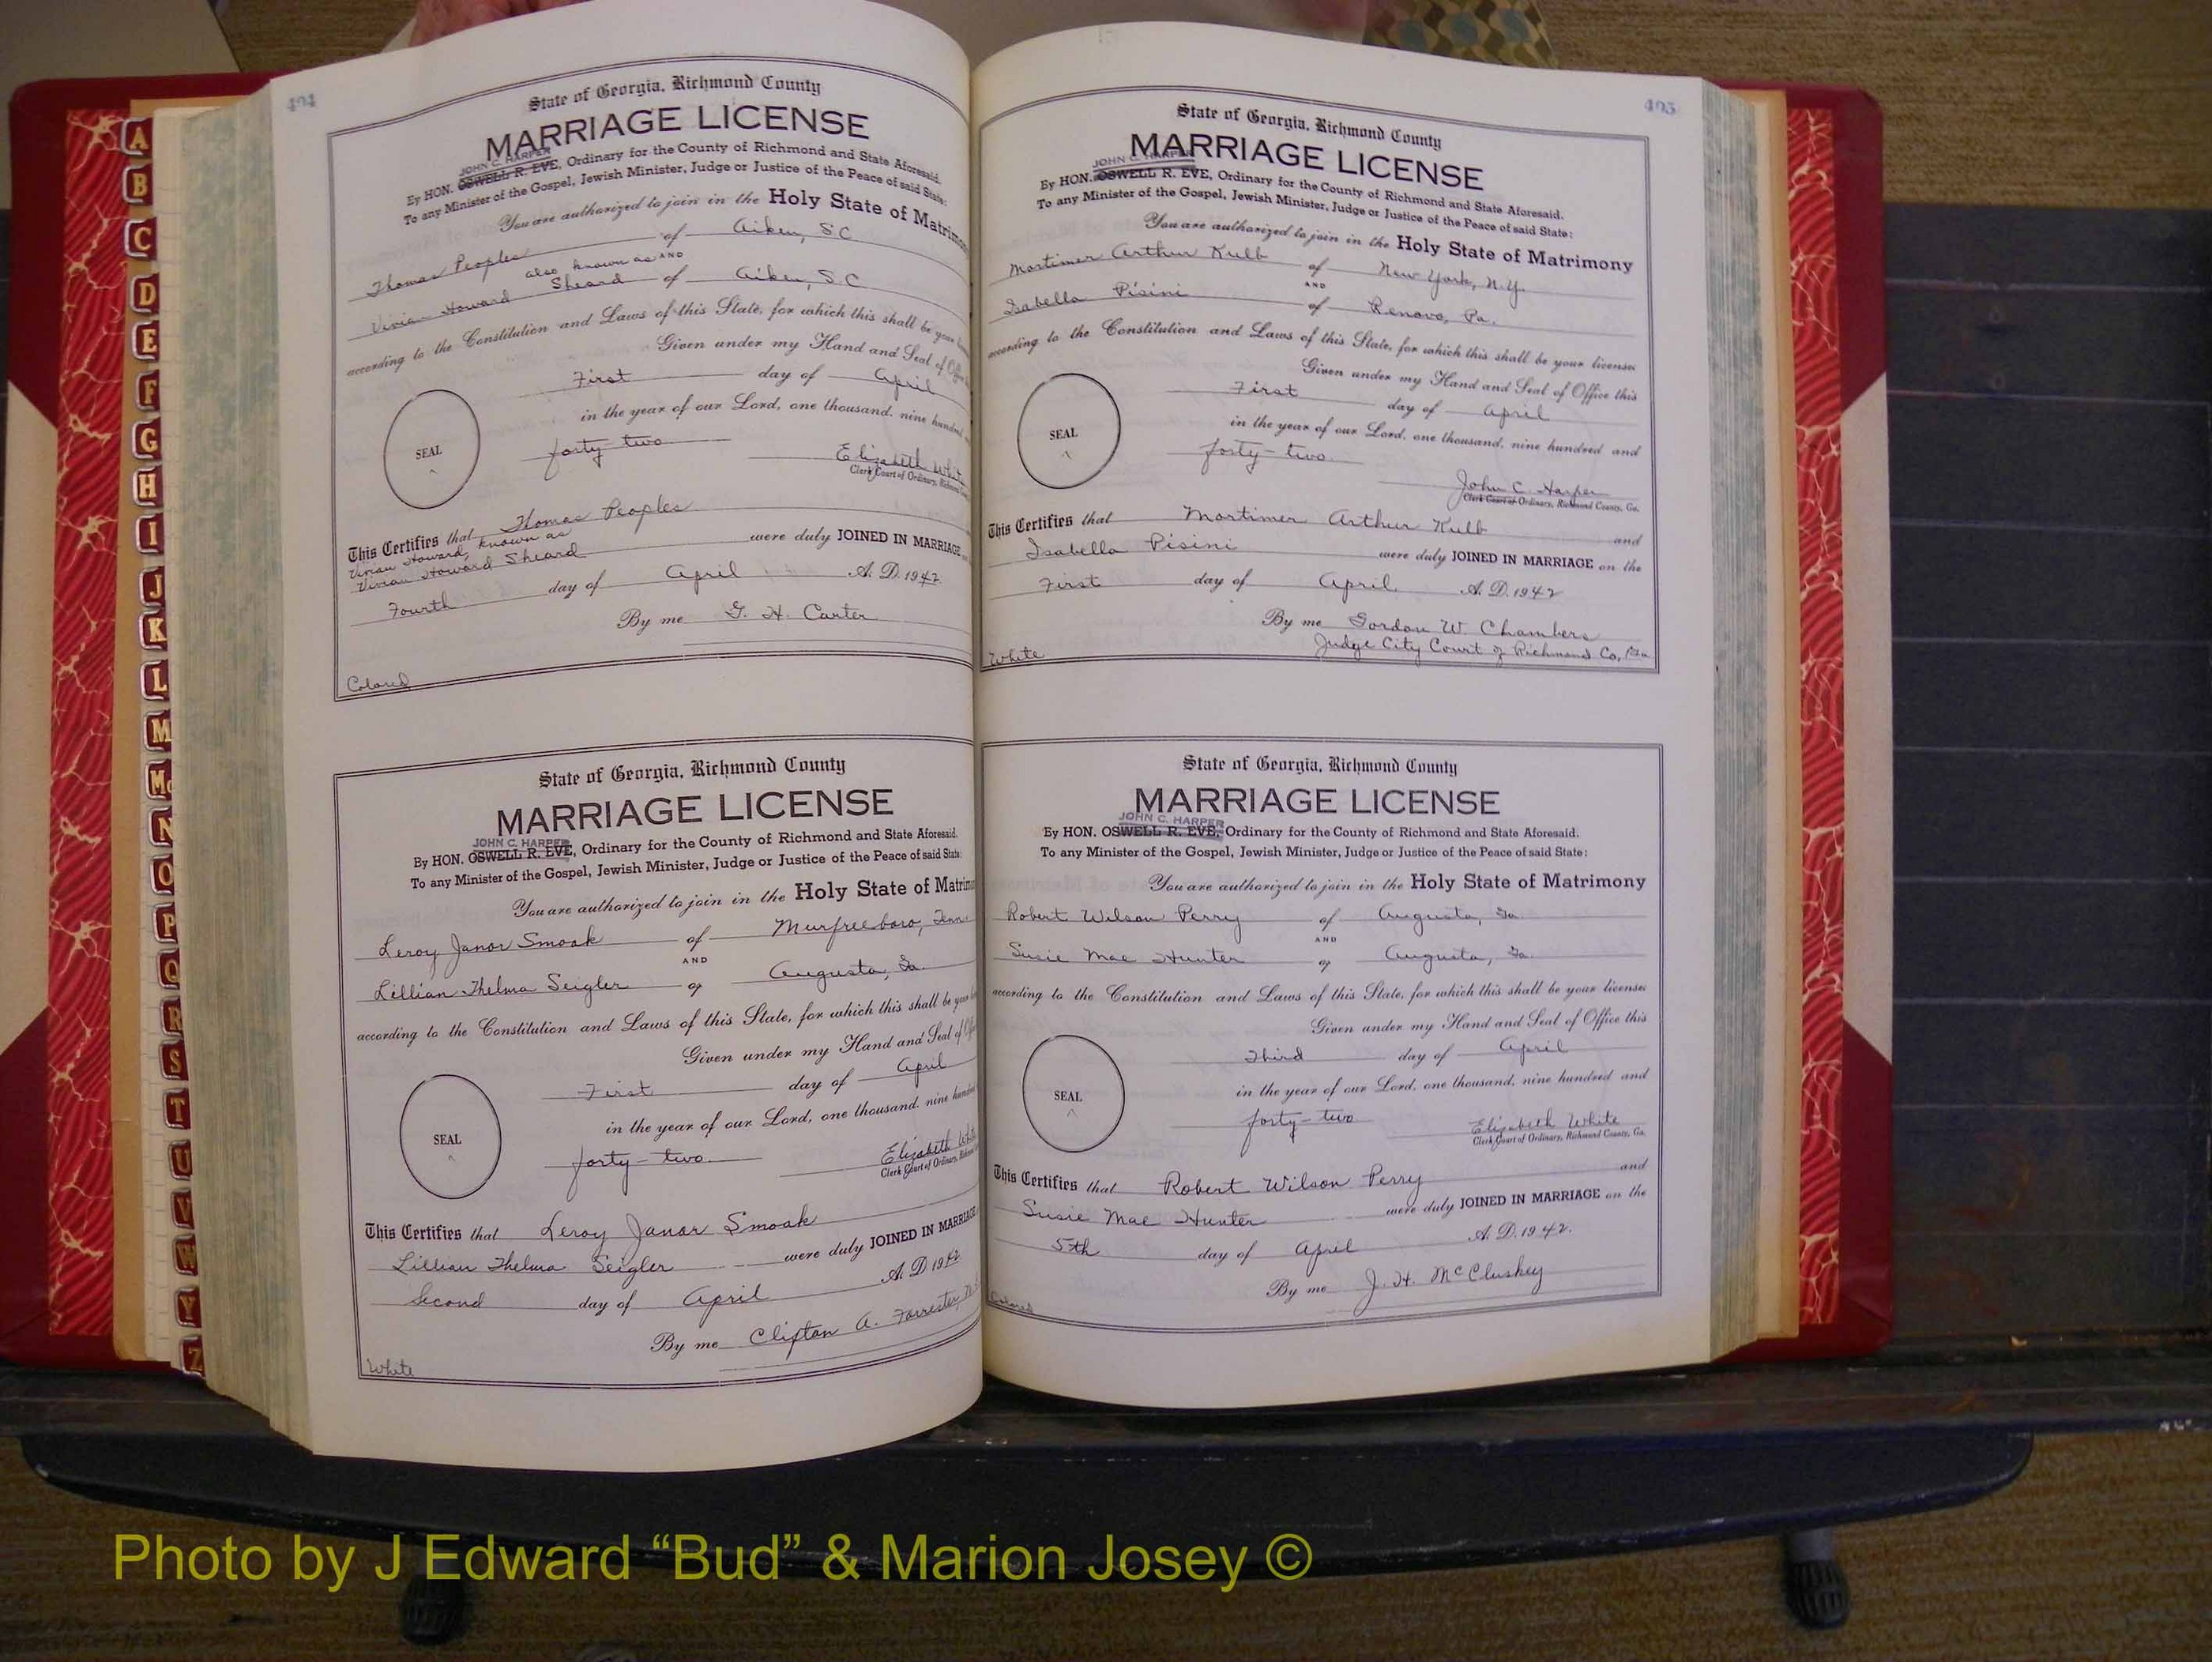 494
State of Georgia, Richmond County
MARRIAGE LICENSE
JOHN C. HARPER
By HON. OSWELL R. EVE, Ordinary for the County of Richmond and State Aforesaid.
To any Minister of the Gospel, Jewish Minister, Judge or Justice of the Peace of said State:
You are authorized to join in the Holy State of Matrimony
Thomas Peoples of Aiken, S.C
also known as AND
Vivian Howard Sheard of Aiken, S.C
according to the Constitution and Laws of this State, for which this shall be your
Given under my Hand and Seal of Office
First day of April
in the year of our Lord, one thousand, nine hundred
SEAL
forty two
Elizabeth White
Clerk Court of Ordinary, Richmond
This Certifies that Thomas Peoples
Vivian Howard, known as
Vivian Howard Sheard were duly JOINED IN MARRIAGE
Fourth day of April A. D. 1942
By me G. H. Carter
Colored
State of Georgia, Richmond County
MARRIAGE LICENSE
JOHN C. HARPER
By HON. OSWELL R. EVE, Ordinary for the County of Richmond and State Aforesaid.
To any Minister of the Gospel, Jewish Minister, Judge or Justice of the Peace of said State:
You are authorized to join in the Holy State of Matrimony
Leroy Janor Smoak of Murfreeboro, Tenn.
AND
Lillian Thelma Seigler of Augusta, Ga.
according to the Constitution and Laws of this State, for which this shall be your
Given under my Hand and Seal of Office
First day of April
in the year of our Lord, one thousand, nine hundred
SEAL
forty-two.
Elizabeth White
Clerk Court of Ordinary, Richmond
This Certifies that Leroy Janor Smoak
Lillian Thelma Seigler were duly JOINED IN MARRIAGE
Second day of April A. D. 1942
By me Clifton A. Forrester,
White
495
State of Georgia, Richmond County
MARRIAGE LICENSE
JOHN C. HARPER
By HON. OSWELL R. EVE, Ordinary for the County of Richmond and State Aforesaid.
To any Minister of the Gospel, Jewish Minister, Judge or Justice of the Peace of said State:
You are authorized to join in the Holy State of Matrimony
Mortimer Arthur Kulb of New York, N.Y.
AND
Isabella Pisini of Renovo, Pa.
according to the Constitution and Laws of this State, for which this shall be your license
Given under my Hand and Seal of Office this
First day of April
in the year of our Lord, one thousand, nine hundred and
SEAL
forty-two.
John C. Harper
Clerk Court of Ordinary, Richmond County, Ga.
This Certifies that Mortimer Arthur Kulb and
Isabella Pisini were duly JOINED IN MARRIAGE on the
First day of April A. D. 1942
By me Gordon W. Chambers
Judge City Court of Richmond Co, Ga
White
State of Georgia, Richmond County
MARRIAGE LICENSE
JOHN C. HARPER
By HON. OSWELL R. EVE, Ordinary for the County of Richmond and State Aforesaid.
To any Minister of the Gospel, Jewish Minister, Judge or Justice of the Peace of said State:
You are authorized to join in the Holy State of Matrimony
Robert Wilson Perry of Augusta, Ga.
AND
Susie Mae Hunter of Augusta, Ga.
according to the Constitution and Laws of this State, for which this shall be your license
Given under my Hand and Seal of Office this
Third day of April
in the year of our Lord, one thousand, nine hundred and
SEAL
forty-two
Elizabeth White
Clerk Court of Ordinary, Richmond County, Ga.
This Certifies that Robert Wilson Perry and
Susie Mae Hunter were duly JOINED IN MARRIAGE on the
5th day of April A. D. 1942.
By me J. H. McCluskey
Colored
A
B
C
D
E
F
G
H
I
J
K
L
M
Mc
N
O
P
Q
R
S
T
U
V
W
Y
Z
Photo by J Edward “Bud” & Marion Josey ©